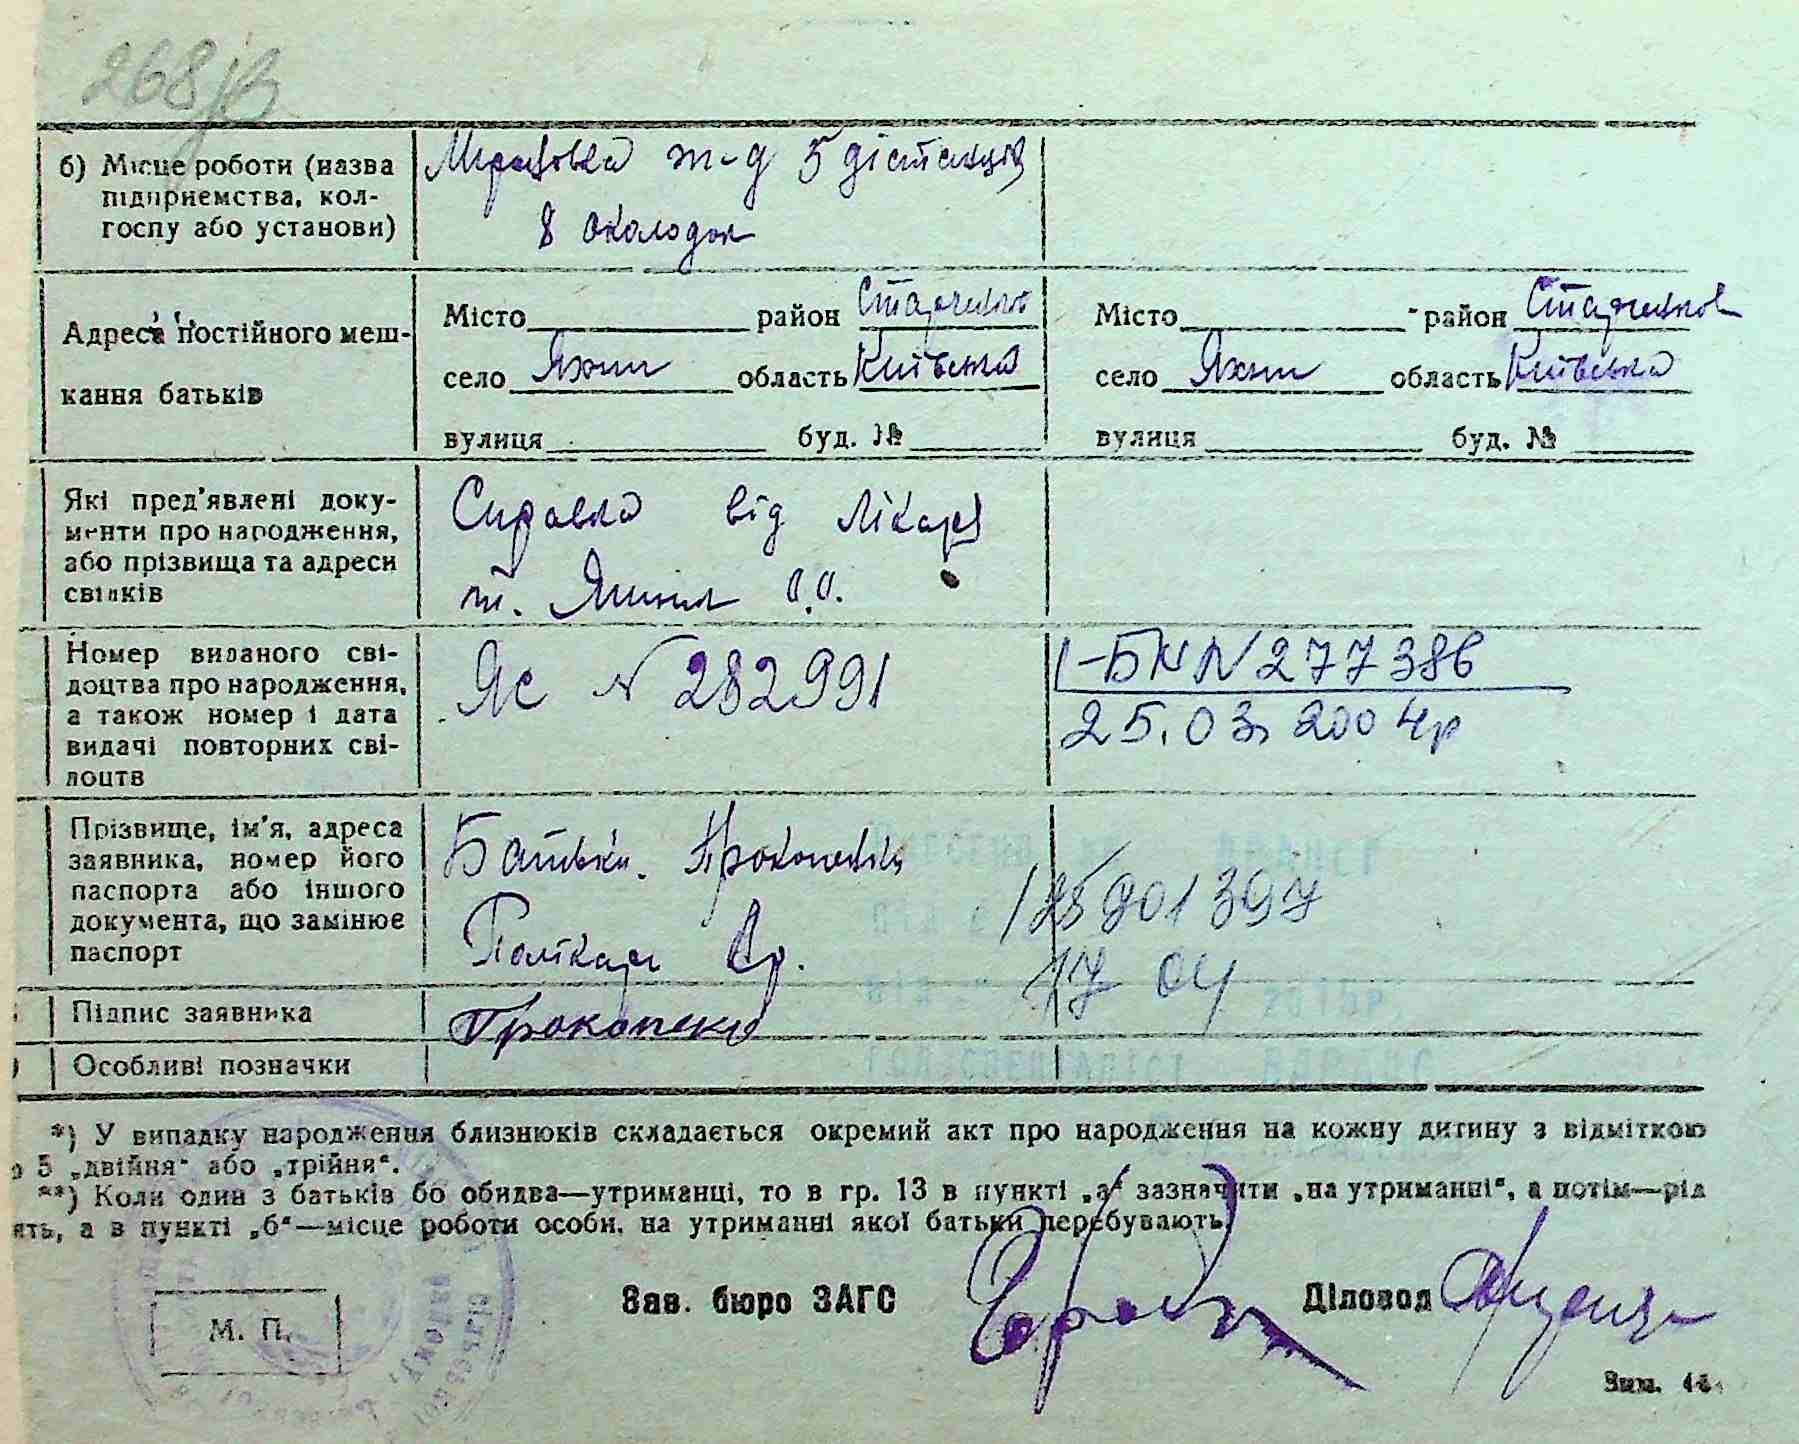 268
б) Місце роботи (назва підприємства, колгоспу або установи)
Миронівка ж-д 5 дістанція
8 околодок
Адреса постійного мешкання батьків
Місто район
село Яхни область Київська
вулиця буд. №
Місто район
село Яхни область Київська
вулиця буд. №
Які пред'явлені документи про народження, або прізвища та адреси свідків
Справка від Лікаря
О.О.
Номер виданого свідоцтва про народження, а також номер і дата видачі повторних свідоцтв
ЯС № 282991
I-БК № 277386
25.03.2004р
Прізвище, ім'я, адреса заявника, номер його паспорта або іншого документа, що замінює паспорт
Батьки. Прокопенки
Полікарп
17 04
Підпис заявника
Прокопенко
Особливі позначки
*) У випадку народження близнюків складається окремий акт про народження на кожну дитину з відміткою
5 „двійня“ або „трійня“.
**) Коли один з батьків бо обидва—утриманці, то в гр. 13 в пункті „а“ зазначити „на утриманні“, а потім—рід
ять, а в пункті „б“—місце роботи особи, на утриманні якої батьки перебувають.
М. П.
Зав. бюро ЗАГС
Діловод
Зам.